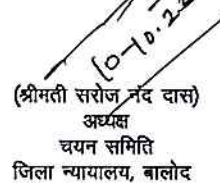 10-10.22
(श्रीमती सरोज नंद दास)
अध्यक्ष
चयन समिति
जिला न्यायालय, बालोद